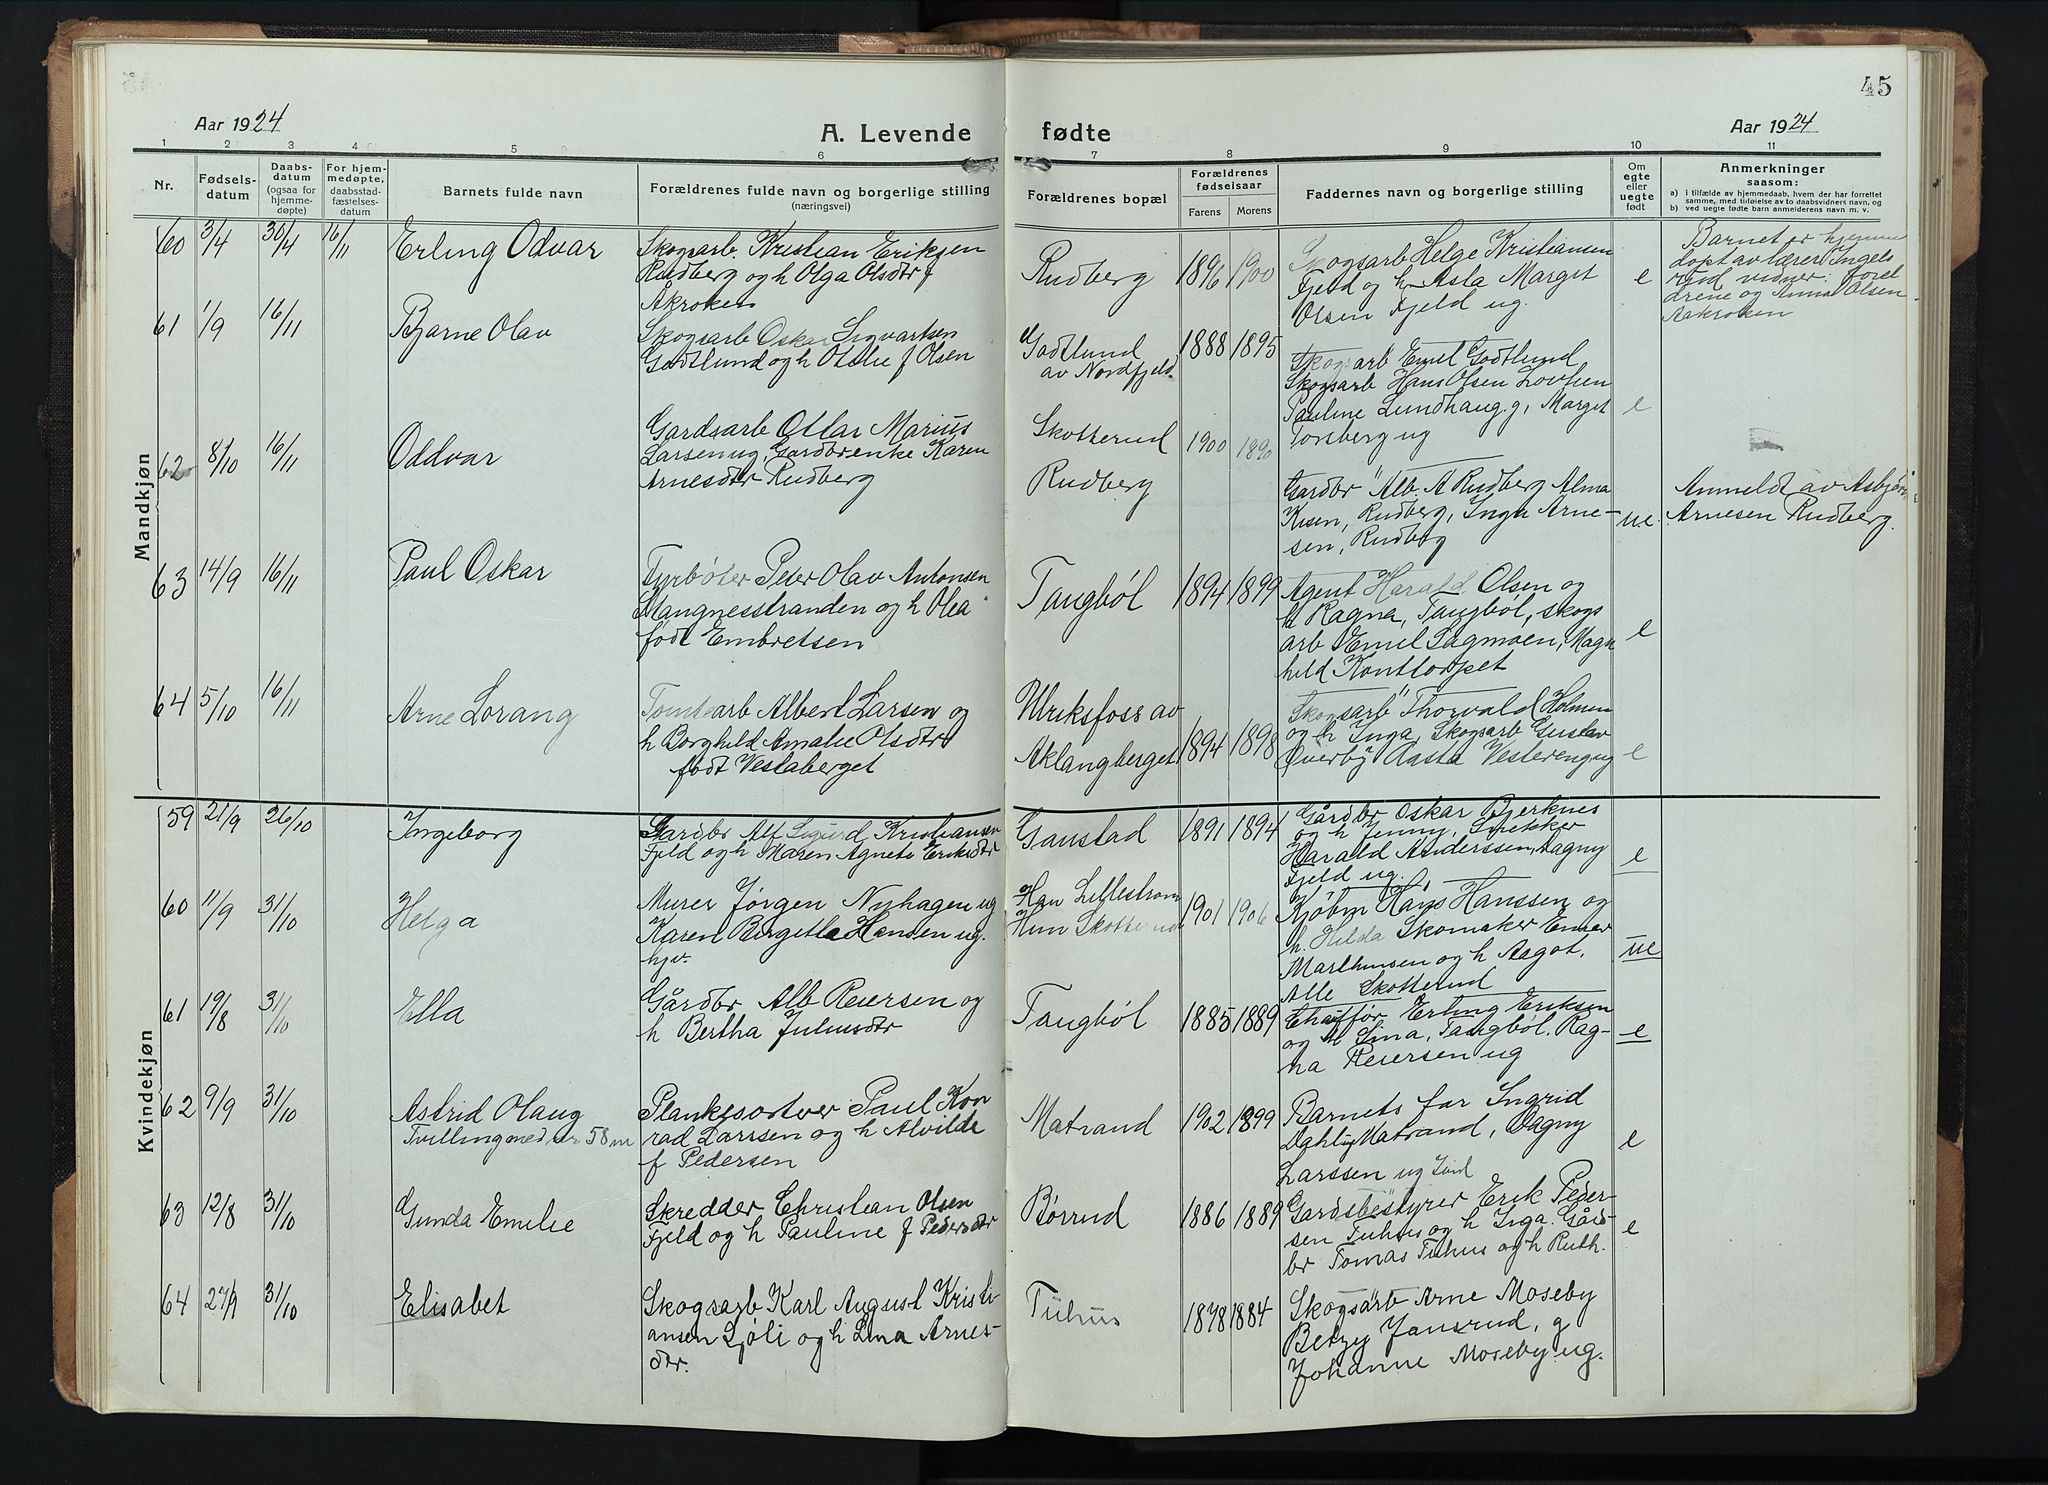 45
Aar 1924
A. Levende
fødte
Aar 1924
1 2 3 4 5 6 7 8 9 10 11
Nr.
Fødsels-
datum
Daabs-
datum
(ogsaa for
hjemme-
døpte)
For hjem-
medøpte,
daabsstad-
fæstelses-
datum
Barnets fulde navn
Forældrenes fulde navn og borgerlige stilling
(næringsvei)
Forældrenes bopæl
Forældrenes
fødselsaar
Farens
Morens
Faddernes navn og borgerlige stilling
Om
egte
eller
uegte
født
Anmerkninger
saasom:
a) i tilfælde av hjemmedaab, hvem der har forrettet
samme, med tilføielse av to daabsvidners navn m. v.
b) ved uegte fødte barn anmelderens navn m. v.
Mandkjøn
60 3/4 30/4 16/11 Erling Odvar
Skogsarb. Kristian Eriksen
Rudberg og h Olga Olsdtr f
Åkroken
Rudberg 1896 1900
Skogsarb Helge Kristiansen
Fjeld og h Asta Marget
Olsen Fjeld ug.
e
Barnet er hjemme
døpt av lærer Ingels
rud vidner: Forel
drene og Anna Olsen
Aakroken
61 1/9 16/11 Bjarne Olav
Skogsarb Oskar Sigvartsen
Godtlund og h Otilie f Olsen
Godtlund
av Nordfjeld
1888 1895
Skogsarb Emil Godtlund
Skogsarb Hans Olsen Lovlien
Pauline Lundhaug g, Marget
Torsberg ug
e
62 8/10 16/11 Oddvar
Gardsarb Ottar Marius
Larsen ug, Gardbrenke Karen
Arnesdtr Rudberg
Skotterud
Rudberg
1900 1890
Gardbr Alb. A Rudberg Alma
Rudberg, Inga Arne-
sen, Rudberg
ue.
Anmeldt av Asbjørn
Arnesen Rudberg.
63 14/9 16/11 Paul Oskar
Fyrbøter Peter Olav Antonsen
Mangnesstranden og h Olea
født Embretsen
Tangbøl 1894 1899
Agent Harald Olsen og
h Ragna, Tangbøl, skogs
arb Emil Sagmoen, Magn
hild Kontorpet
e
64 5/10 16/11 Arne Lorang
Tomtearb Albert Larsen og
h Borghild Amalie Olsdtr
født Vestaberget
Ulriksfoss av
Aklangberget
1894 1898
Skogsarb Thorvald Holmen
og h Inga, Skogsarb Gustav
Øverby Aasta Vestereng ug
e
Kvindekjøn
59 21/9 26/10 Ingeborg
Gardbr Alf Sigurd Kristiansen
Fjeld og h Maren Agnete Eriksdtr
Ganstad 1891 1894
Gårdbr Oskar Bjerknes
og h Jenny, Snekker
Harald Anderssen, Dagny
Fjeld ug.
e
60 11/9 31/10 Helga
Murer Jørgen Nyhagen ug
Karen Birgitte Hansen ug.
hjv.
Han Lillestrøm
Hun Skotterud
1901 1906
Kjøbm Hans Hanssen og
h. Hilda Skomaker Einar
Marthinsen og h Aagot.
Alle Skotterud
ue
61 19/8 31/10 Ella
Gårdbr Alb Reiersen og
h Bertha Juliusdtr
Tangbøl 1885 1889
Chauffør Erling Eriksen
og h Sina, Tangbøl. Rag-
na Reiersen ug
e
62 9/9 31/10 Astrid Olaug
Tvilling med nr 58 m
Plankesorterer Paul Kon
rad Larssen og h Alvilde
f Pedersen
Matrand 1902 1899
Barnets far Ingrid
Dahl ug Matrand, Dagny
Larssen ug
e
63 12/8 31/10 Gunda Emilie
Skredder Christian Olsen
Fjeld og h Pauline f Pedersdtr
Børrud 1886 1889
Gardsbestyrer Erik Peder-
sen Tuhus og h Inga. Gård-
br Tomas Tuhus og h Ruth.
e
64 27/9 31/10 Elisabet
Skogsarb Karl August Kristi
ansen Ljøli og h Lina Arnes-
dtr.
Tuhus 1878 1884
Skogsarb Arne Moseby
Betzy Jansrud, g
Johanne Moseby ug.